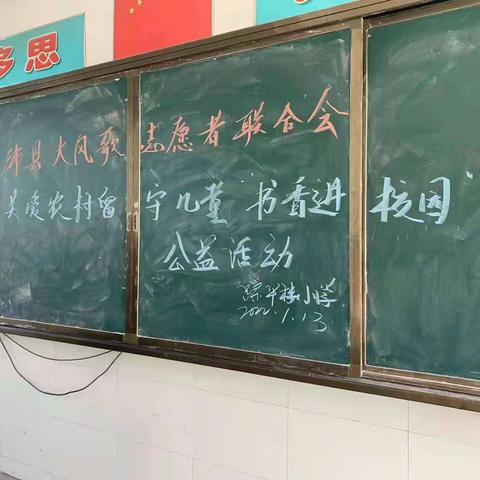 多思
沛县大风歌志愿者联合会
关爱农村留守儿童 书香进校园
公益活动
小学
2022.1.13